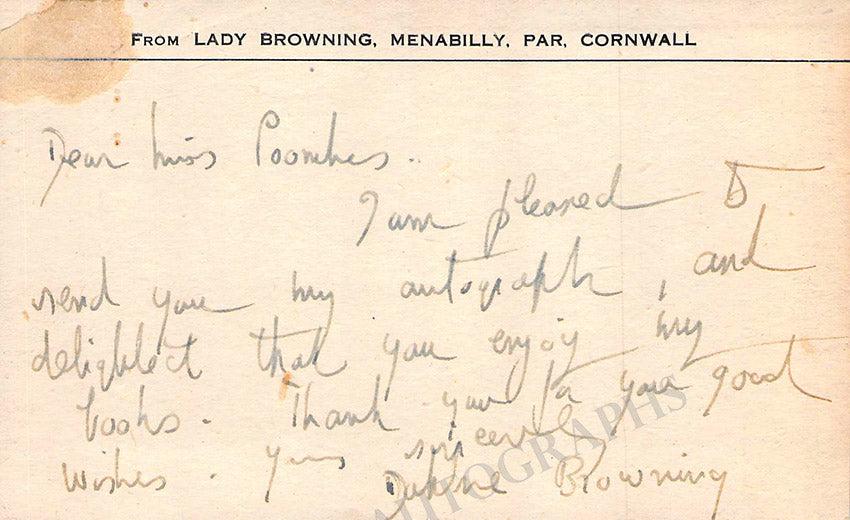 FROM LADY BROWNING, MENABILLY, PAR, CORNWALL
Dear Miss Coombes.
I am pleased to
send you my autograph, and
delighted that you enjoy my
books. Thank you for your good
wishes. Yours sincerely
Daphne Browning
AUTOGRAPHS